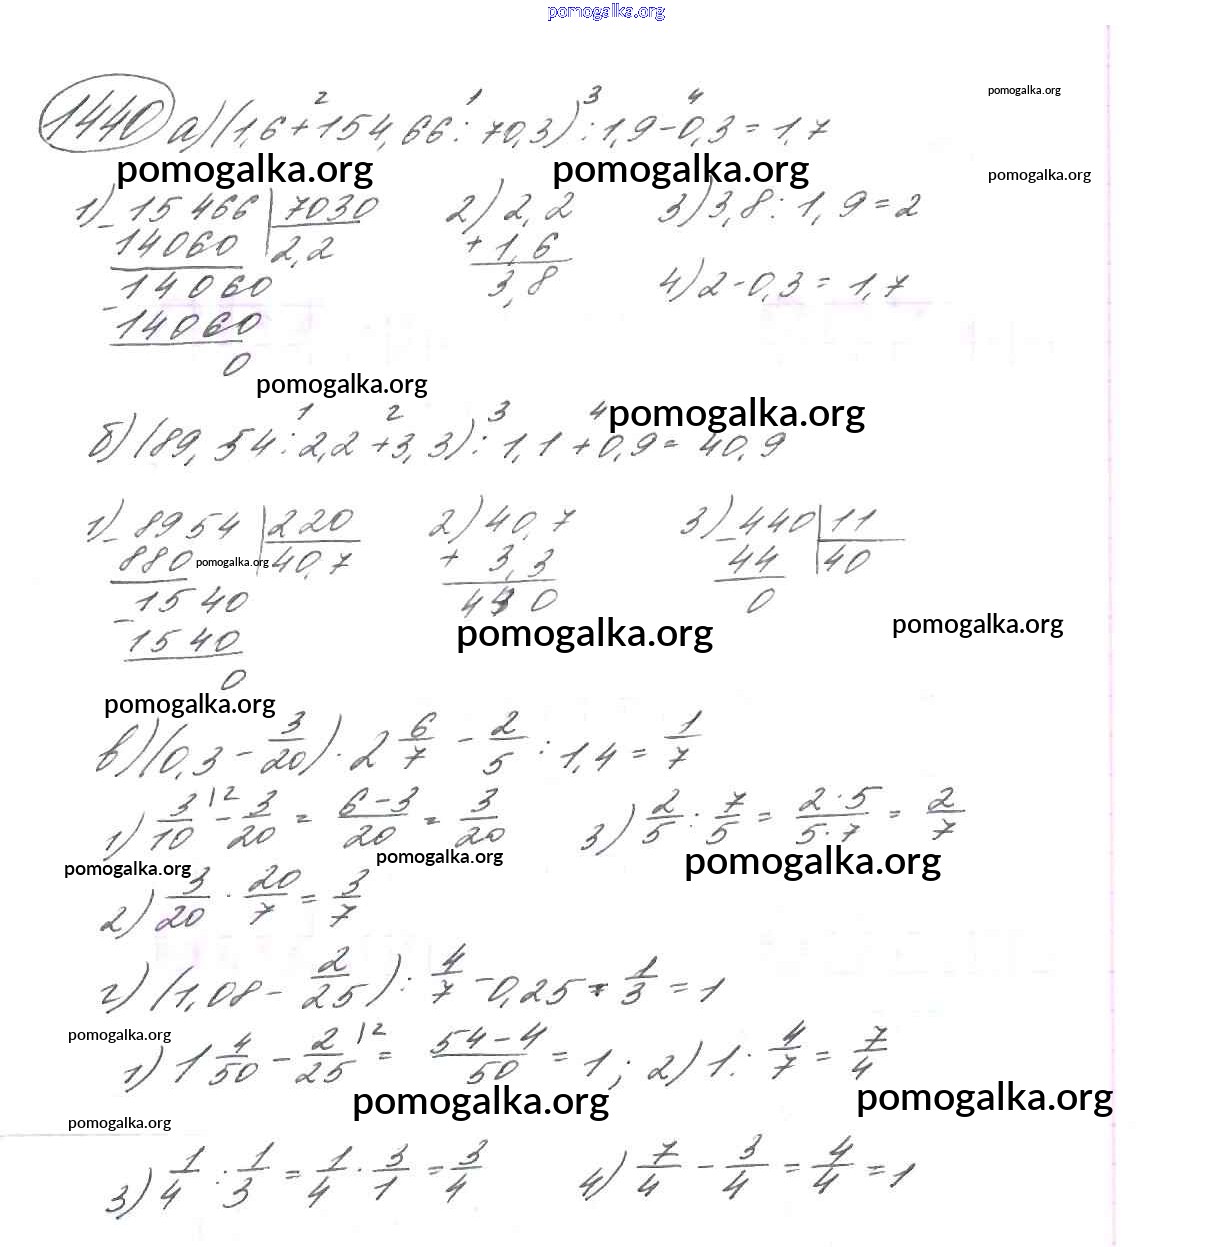 pomogalka.org
2 1 3 4
1440 а) (1,6+154,66:70,3):1,9-0,3=1,7
pomogalka.org
pomogalka.org pomogalka.org pomogalka.org
1) 15 466 | 7030 2) 2,2 3) 3,8:1,9=2
- 14060 2,2 + 1,6
14060 3,8 4) 2-0,3=1,7
- 14060
0
pomogalka.org
1 2 3 4 pomogalka.org
б) (89,54:2,2+3,3):1,1+0,9=40,9
1) - 8954 | 220 2) 40,7 3) - 440 | 11
880 pomogalka.org 40,7 + 3,3 44 40
1540 44 0 0
- 1540 pomogalka.org pomogalka.org
0
pomogalka.org
в) (0,3 - 3/20) · 2 6/7 - 2/5 : 1,4 = 1/7
1) 3/10 |2 - 3/20 = 6-3/20 = 3/20 3) 2/5 : 7/5 = 2·5/5·7 = 2/7
pomogalka.org pomogalka.org pomogalka.org
2) 3/20 · 20/7 = 3/7
г) (1,08 - 2/25) : 4/7 - 0,25 : 1/3 = 1
pomogalka.org
1) 1 4/50 - 2/25 |2 = 54-4/50 = 1; 2) 1 : 4/7 = 7/4
pomogalka.org pomogalka.org
pomogalka.org
3) 1/4 : 1/3 = 1/4 · 3/1 = 3/4 4) 7/4 - 3/4 = 4/4 = 1